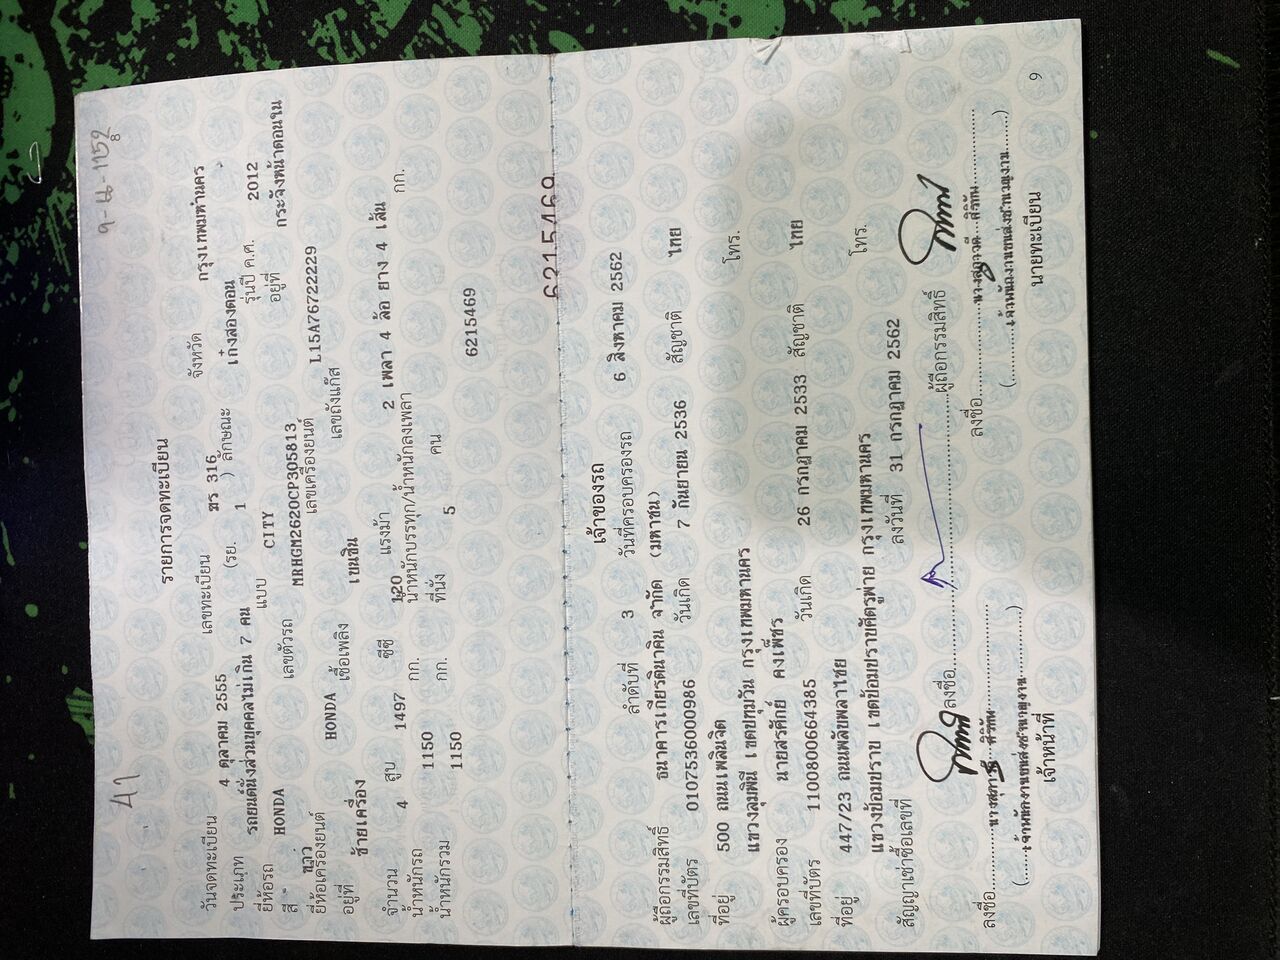 41
9-น-1152
8
รายการจดทะเบียน
วันจดทะเบียน 4 ตุลาคม 2555 เลขทะเบียน ฆร 316 จังหวัด กรุงเทพมหานคร
ประเภท รถยนต์นั่งส่วนบุคคลไม่เกิน 7 คน (รย. 1 ) ลักษณะ เก๋งสองตอน
ยี่ห้อรถ HONDA แบบ CITY รุ่นปี ค.ศ. 2012
สี ขาว เลขตัวรถ MRHGM2620CP305813 อยู่ที่ กระจังหน้าตอนใน
ยี่ห้อเครื่องยนต์ HONDA เลขเครื่องยนต์ L15A76722229
อยู่ที่ ซ้ายเครื่อง เชื้อเพลิง เบนซิน เลขถังแก๊ส
จำนวน 4 สูบ 1497 ซีซี 120 แรงม้า 2 เพลา 4 ล้อ ยาง 4 เส้น
น้ำหนักรถ 1150 กก. น้ำหนักบรรทุก/น้ำหนักลงเพลา กก.
น้ำหนักรวม 1150 กก. ที่นั่ง 5 คน
6215469
6215469
เจ้าของรถ
ลำดับที่ 3 วันที่ครอบครองรถ 6 สิงหาคม 2562
ผู้ถือกรรมสิทธิ์ ธนาคารเกียรตินาคิน จำกัด (มหาชน)
เลขที่บัตร 0107536000986 วันเกิด 7 กันยายน 2536 สัญชาติ ไทย
ที่อยู่ 500 ถนนเพลินจิต
แขวงลุมพินี เขตปทุมวัน กรุงเทพมหานคร โทร.
ผู้ครอบครอง นายสรศักย์ คงเพ็ชร
เลขที่บัตร 1100800664385 วันเกิด 26 กรกฎาคม 2533 สัญชาติ ไทย
ที่อยู่ 447/23 ถนนพลับพลาไชย
แขวงป้อมปราบ เขตป้อมปราบศัตรูพ่าย กรุงเทพมหานคร โทร.
สัญญาเช่าซื้อเลขที่ ลงวันที่ 31 กรกฎาคม 2562
ลงชื่อ ผู้ถือกรรมสิทธิ์
ลงชื่อ ลงชื่อ
(เจ้าพนักงานขนส่งชำนาญงาน) (เจ้าพนักงานขนส่งชำนาญงาน)
เจ้าหน้าที่ นายทะเบียน
9